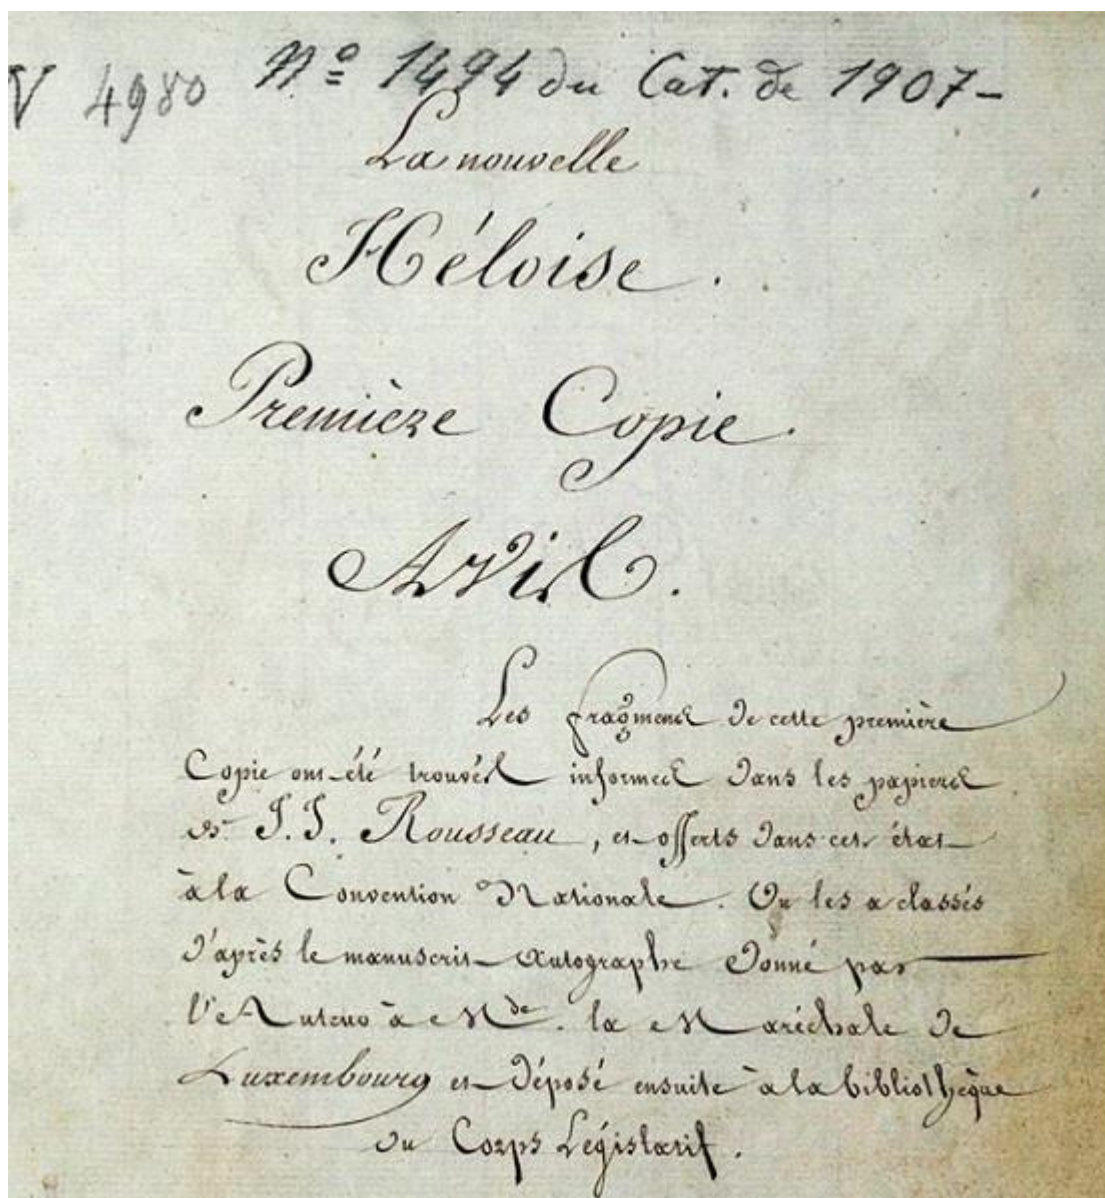 V 4980 Nº 1494 du Cat. de 1907-
La nouvelle
Héloise.
Première Copie.
Avis.
Les fragmens de cette première
Copie ont été trouvés informes dans les papiers
de J.J. Rousseau, et offerts dans cet état
à la Convention Nationale. On les a classés
d'après le manuscrit autographe donné par
l'Auteur à Mde. la Maréchale de
Luxembourg et déposé ensuite à la bibliothèque
du Corps Législatif.